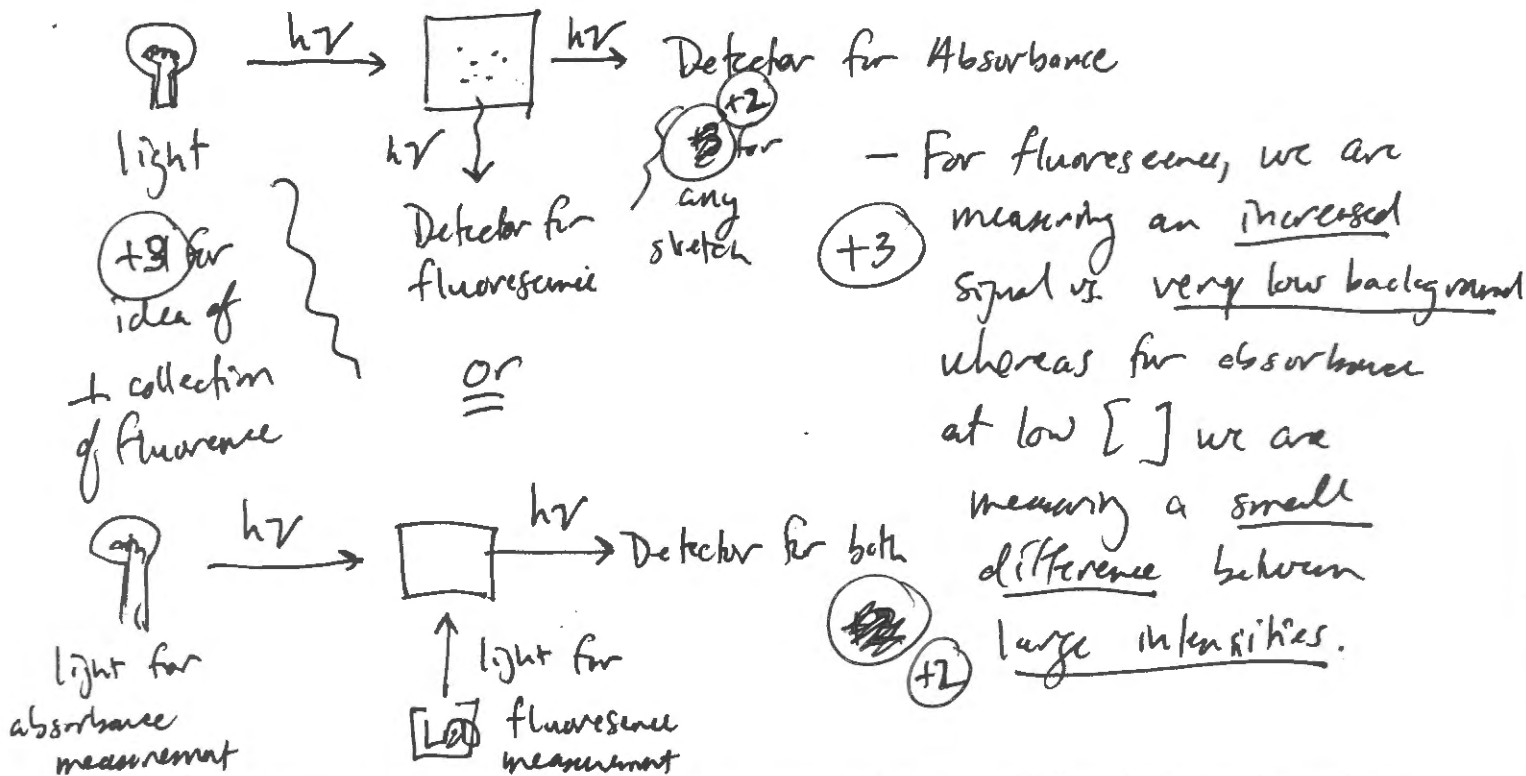 hν
hν
Detector for Absorbance
light
hν
Detector for
fluorescence
+2
for
any
sketch
for
idea of
⊥ collection
of fluorence
or
+3
- For fluorescence, we are
measuring an increased
signal vs. very low background
whereas for absorbance
at low [ ] we are
measuring a small
difference between
large intensities.
hν
hν
Detector for both
+2
light for
absorbance
measurement
light for
fluoresence
measurement